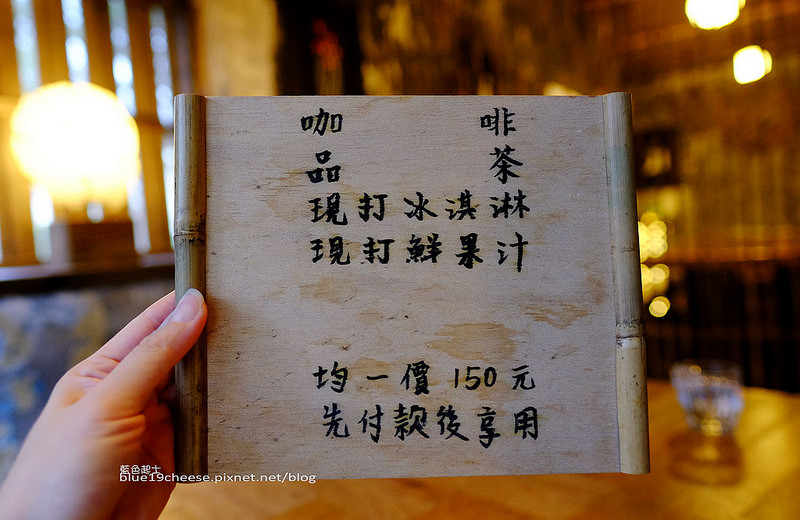 咖啡
品茶
現打冰淇淋
現打鮮果汁
均一價150元
先付款後享用
藍色起士
blue19cheese.pixnet.net/blog